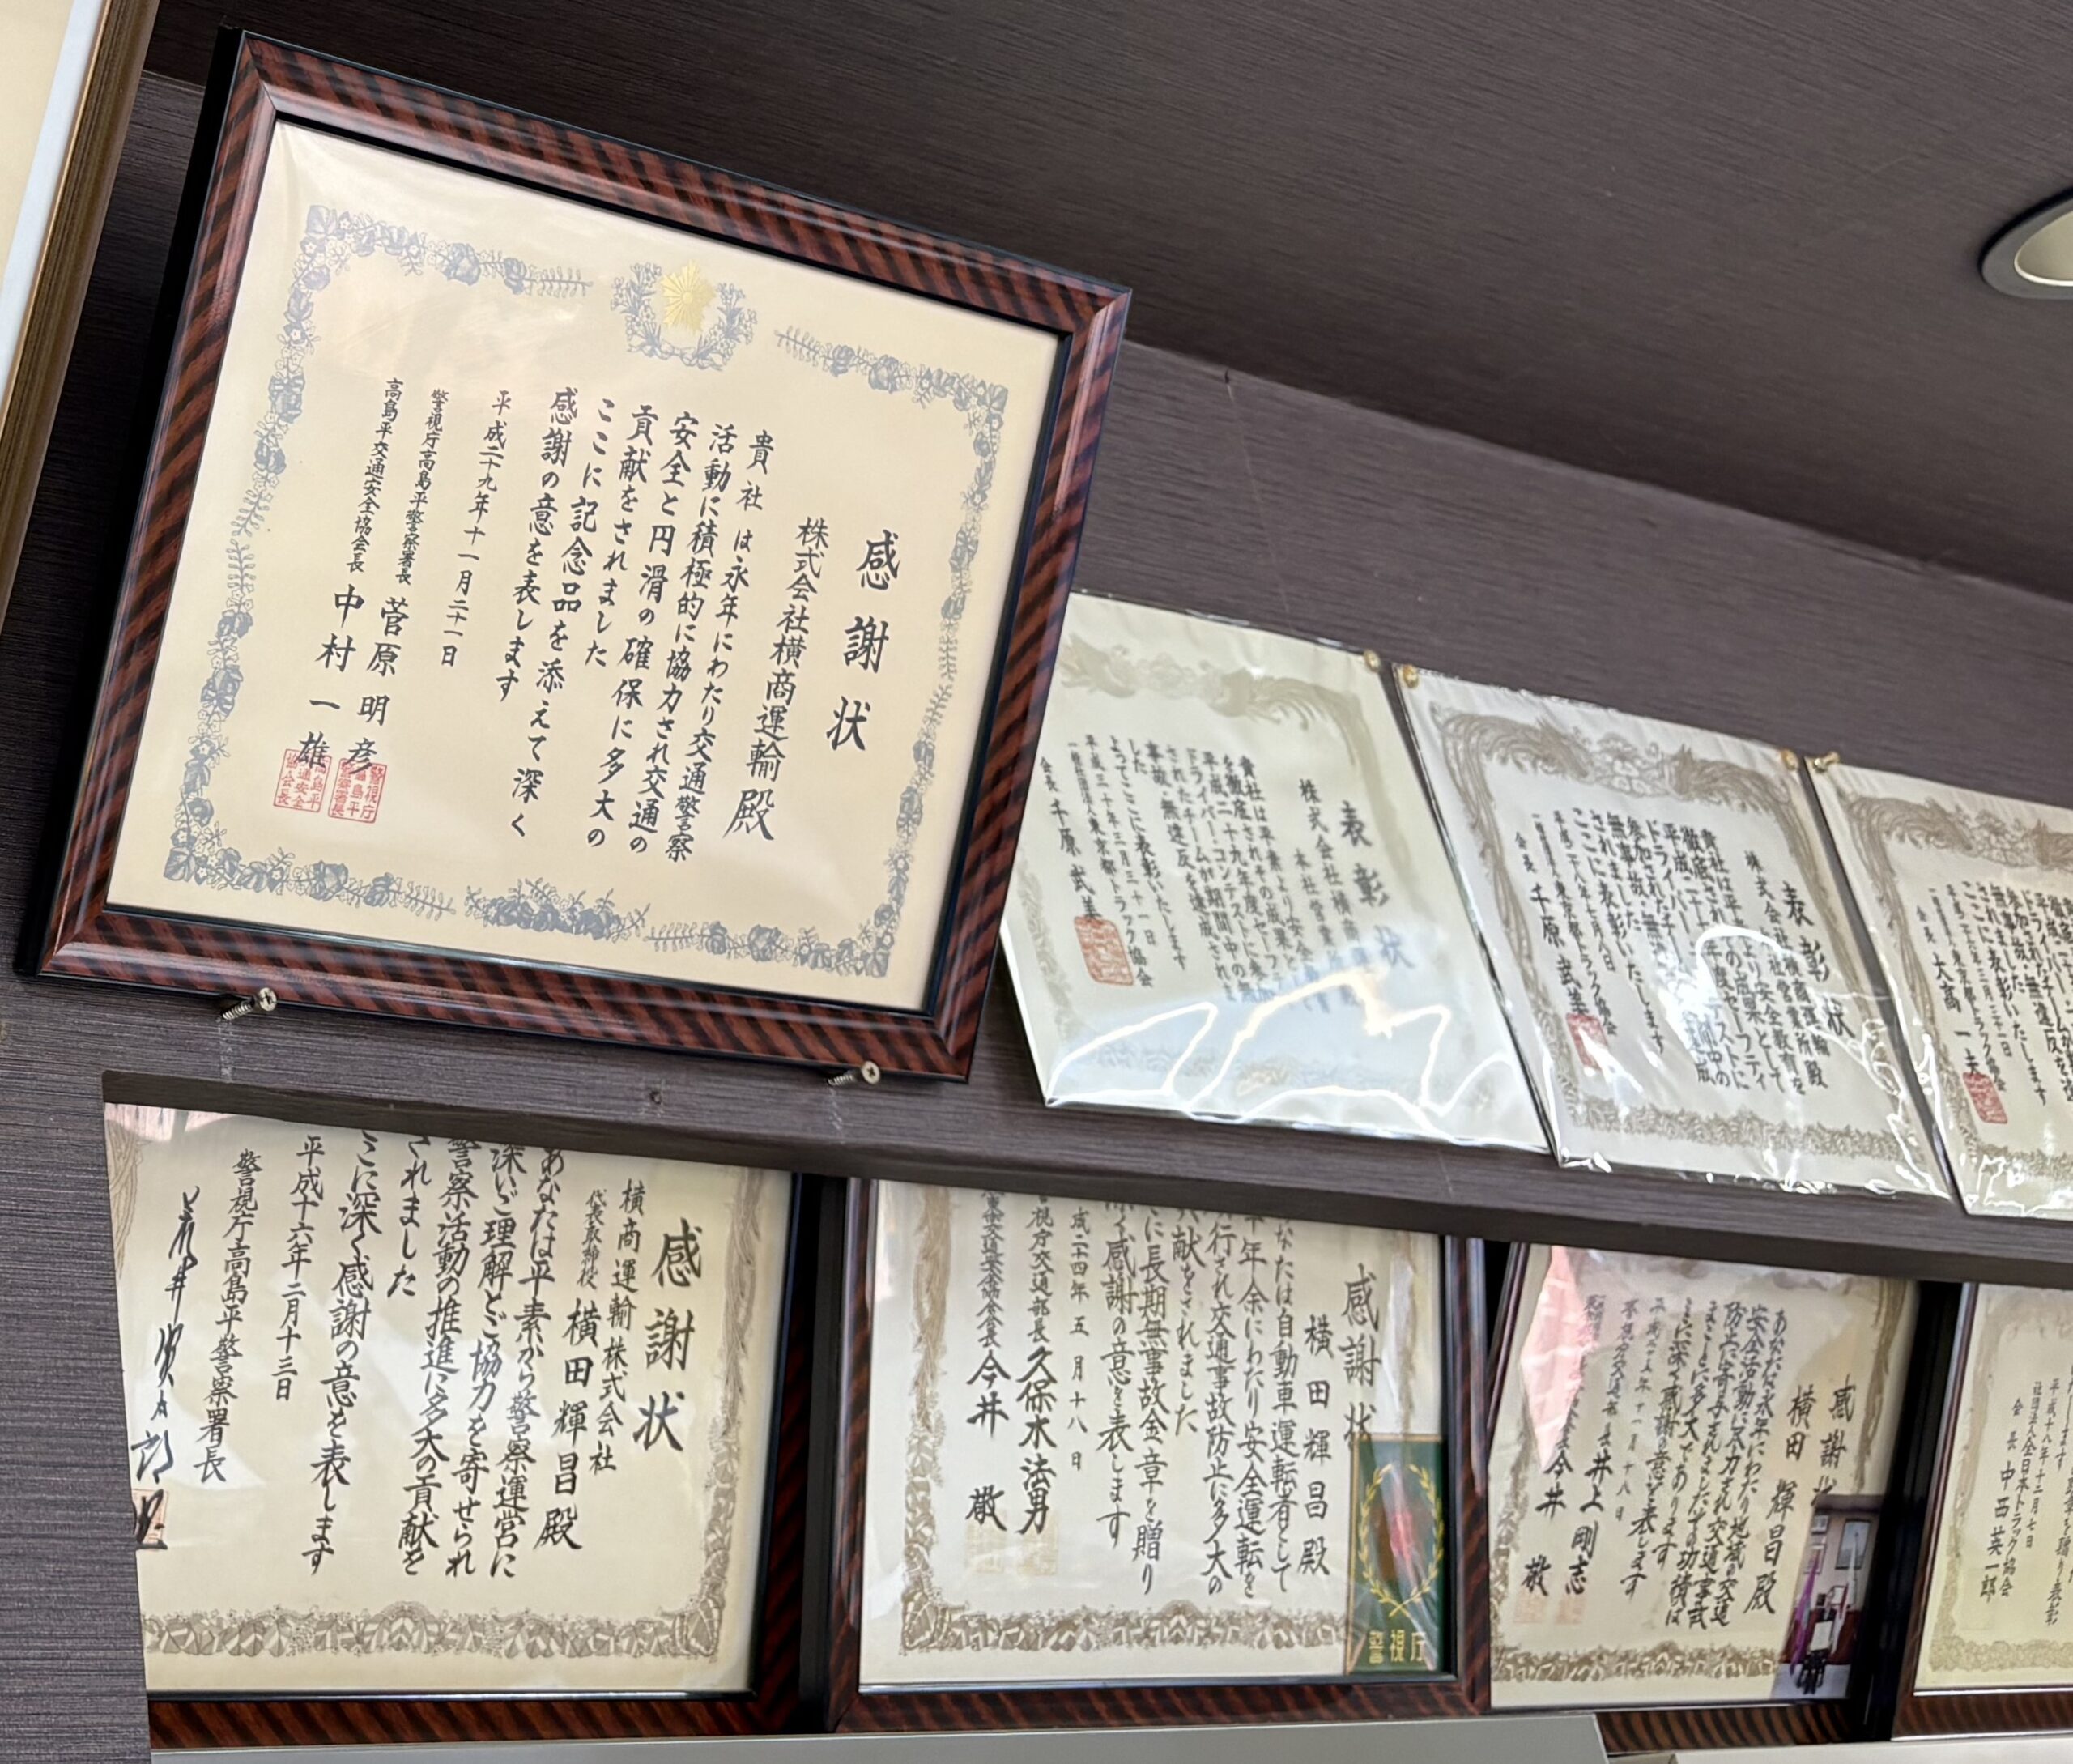 感謝状
株式会社横商運輸殿
貴社は永年にわたり交通警察
活動に積極的に協力され交通の
安全と円滑の確保に多大の
貢献をされました
ここに記念品を添えて深く
感謝の意を表します
平成二十九年十一月二十一日
警視庁高島平警察署長 菅原明彦
高島平交通安全協会長 中村一雄
表彰状
株式会社横商
本社営業所
貴社は平素より安全
を徹底されその成果と
平成二十九年度セーフ
ドライバー・コンテストに参
されたチームが期間中の無
事故・無違反を達成され
した
よってここに表彰いたします
平成三十年三月三十一日
一般社団法人東京都トラック協会
会長 千原武美
表彰状
株式会社横商運輸
本社営業所殿
貴社は平
より安全教育を
徹底され
の成果として
平成二十
年度セーフティ
ドライバー
テストに
参加されたチー
無事故・無
されました
ここに表彰いたします
一般社団法人東京都トラック協会
会長 千原武美
無違反を達
されました
ここに表彰いたします
会長 大高一夫
感謝状
横商運輸株式会社
代表取締役 横田輝昌殿
あなたは平素から警察運営に
深いご理解とご協力を寄せられ
警察活動の推進に多大の貢献を
されました
ここに深く感謝の意を表します
平成十六年二月十三日
警視庁高島平警察署長
感謝状
横田輝昌殿
なたは自動車運転者として
年余にわたり安全運転を
行され交通事故防止に多大の
献をされました
に長期無事故金章を贈り
く感謝の意を表します
成二十四年五月十八日
視庁交通部長 久保木法男
今井敬
警視庁
感謝状
横田輝昌殿
あなたは永年にわたり地域の交通
安全活動に尽力され交通事故
防止に寄与されました
まことに多大でありますその功績は
ここに深く感謝の意を表します
井上剛志
今井敬
平成十八年十二月七日
社団法人全日本トラック協会
会長 中西英一郎